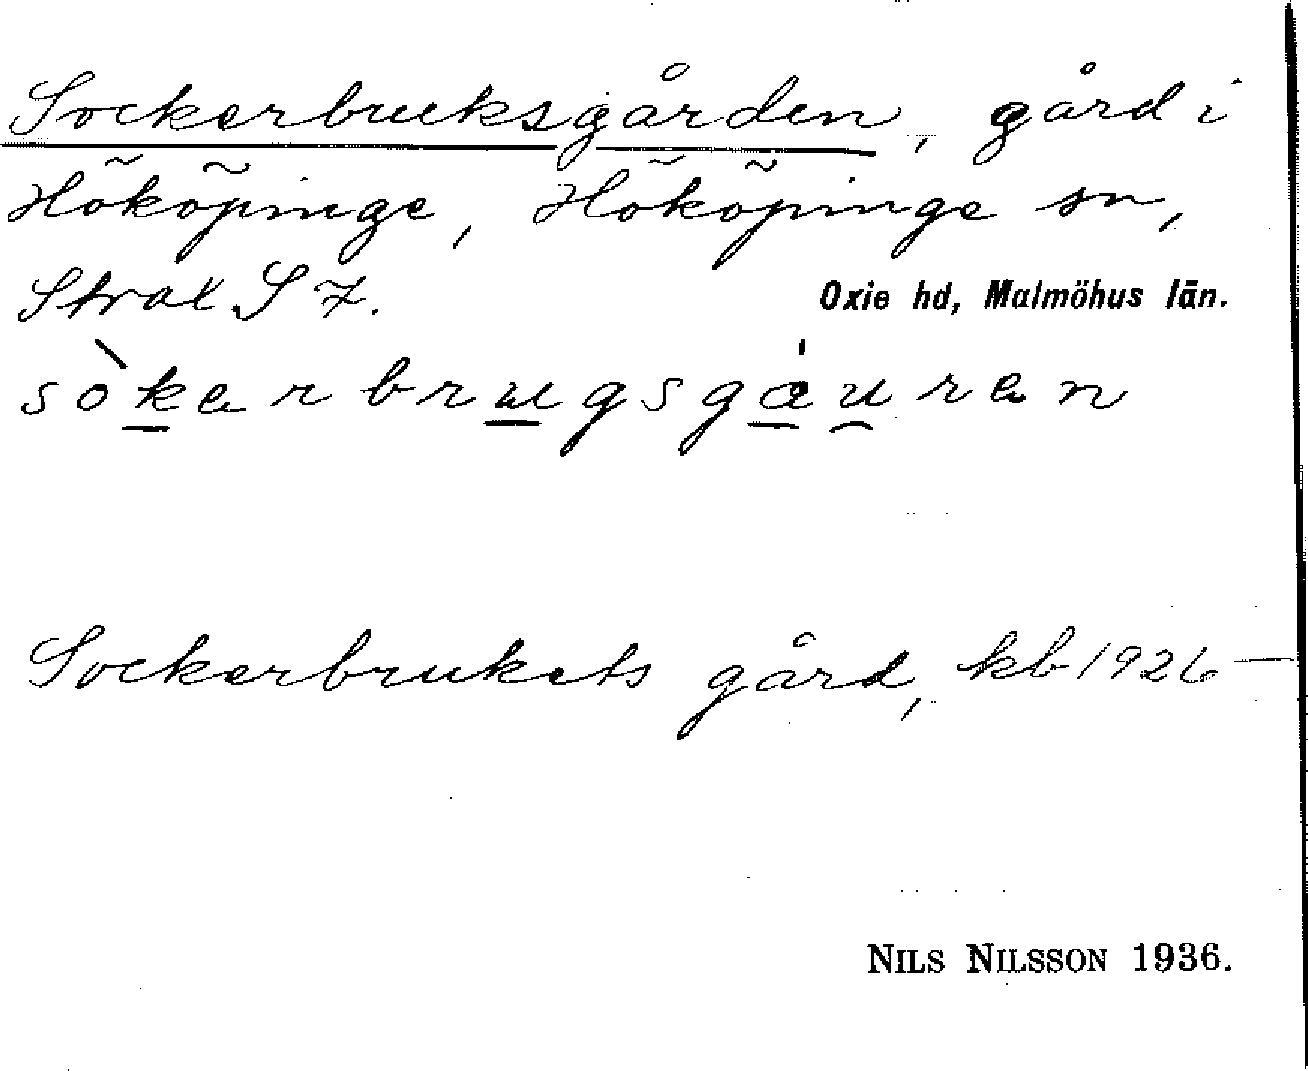 Sockerbruksgården, gård i
Hököpinge, Hököpinge sn,
Strax S 7.
Oxie hd, Malmöhus län.
sòkərbrugsgáu̯rən
Sockerbrukets gård, kb 1926
NILS NILSSON 1936.